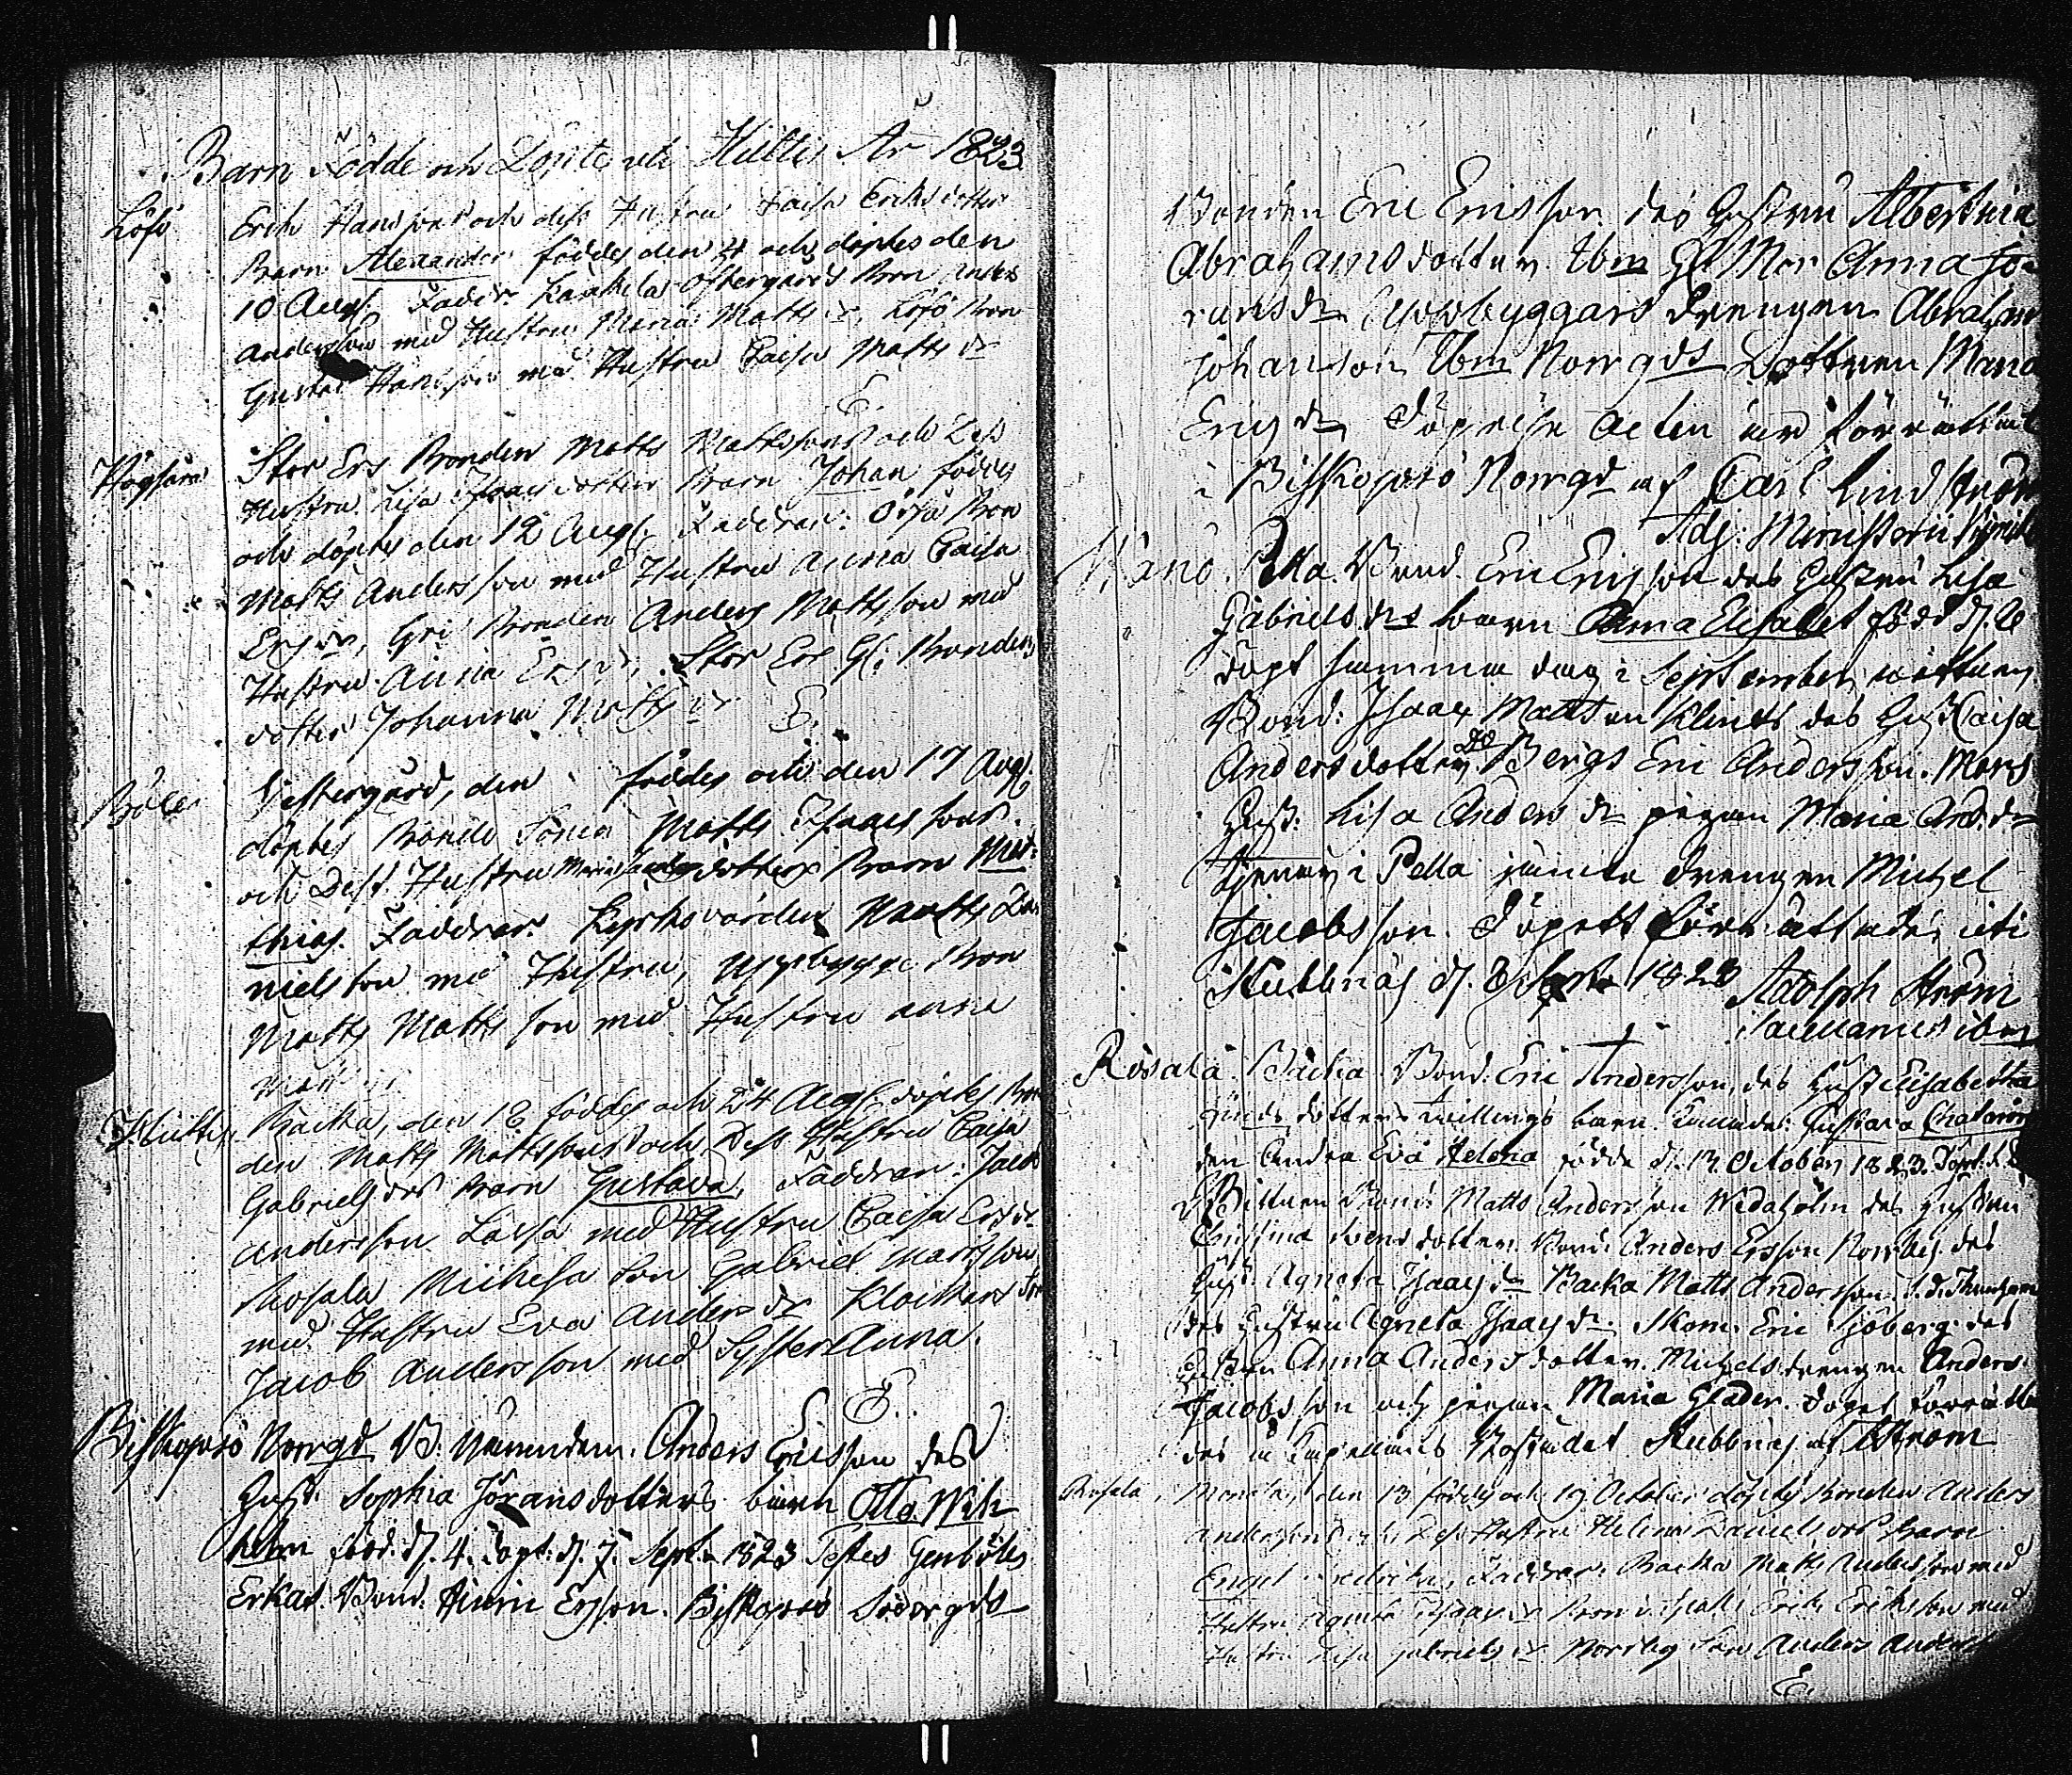 Barn Födde och Döpte uti Hittis År 1823
Löfö
Erik Hansons och dess Hustru Caisa Eriksdotters
Barn Alexander föddes den 4 och döptes den
10 Aug. Faddr. Östergårds Bon Anders
Andersson med Hustru Maria Matts dr, Löfö Bon
Gustaf Hansson med Hustru Caisa Matts dr
E.
Högsåra
Stor Ers Bonden Matts Mattssons och Dess
Hustru Lisa Isaacsdotters Barn Johan föddes
och döptes den 12 Aug. Faddrar: Örjä Bon
Matts Andersson med Hustru Anna Caisa
Ersdr, Bonden Anders Mattsson med
Hustru Anna Ersdr, Stor Ers Gl: Bondens
dotter Johanna Matts dr E.
Böle
Vestergård, den föddes och den 17 Aug.
döptes Bonde Sonen Matts Isaacssons
och Dess Hustru Maria dotters Barn Mat-
thias. Faddrar: Kyrkovärden Matts Da-
nielsson med Hustru, Uppbygge Bon
Matts Mattsson med Hustru Anna
Matts
Hittis,
Backa, den 18 föddes och 24 Aug. döptes Bon
den Matts Mattssons och Dess Hustru Caisa
Gabriels drs Barn Gustava, Faddrar: Jacob
Andersson Lassa med Hustru Caisa Ersdr
Rosala Michelsa Son Gabriel Mattsson
med Hustru Eva Anders dr Klockars Son
Jacob Andersson med Syster Anna.
E.
Biskopsö Norrgd B: Nämndem: Anders Ericsson des
Hust: Sophia Jöransdotters barn Otto Wil-
helm född d. 4. döpt d. 7. Sept. 1823 Testes Genböles
Erkas Bond: Henric Ersson. Biskopsö Södergds
Bonden Eric Ericsson des Hustru Albertina
Abrahamsdotter. Ibm Gl Mor Anna Jö-
rans dr Nybyggars drengen Abraham
Johansson Ibm Norrgds Dottren Maria
Erics dr Döpelse Acten är förrättad
i Biskopsö Norrgd af Carl Lindström
Adj: Ministerii
Wänö. Pella. Bond. Eric Ericsson des Hustru Lisa
Gabriels drs barn Anna Elisabet född d. 2
döpt samma dag i September, vittnen
Bond: Isaac Mattsson Klints des Hust Caisa
Andersdotter, Do Bergs Eric Andersson. Mons
Hust: Lisa Anders dr pigan Maria And: dr
tjenar i Pella jämte drengen Michel
Jacobsson. Döpett förrättade, uti
Stubbnäs d. 2 Sept. 1823 Adolph Ström
Sacellanus ibm
Rosala. Backa. Bond: Eric Andersson, des Hust Elisabetha
dotters twillings barn. Gustava Chatarina
den Andra Eva Helena födda d. 13 October 1823. Döpt. d.
Vittnen Bond: Matts Andersson Wedaholm des Hustru
Christina Svens dotter. Bond: Anders Ersson Norrby des
Hust: Agneta Isaacs dr Backa Matts Andersson
des Hustru Agneta Isaacs dr. Skom: Eric Sjöberg des
Hustru Anna Andersdotter. Michels drengen Anders
Jacobsson och pigan Maria Gra dr. Döpet förrätta-
des i Capellans Bostället Stubbnäs af AStröm
Rosala,
den 13 föddes och 19 October döptes Bonden Anders
Anderssons och Dess Hustru Helena Daniels drs Barn
Engel Faddrar: Backa Matts Andersson med
Hustru Agneta Isaacs dr Erik Eriksson med
Hustru Lisa Gabriels dr Norrby Son Anders Anders
E.